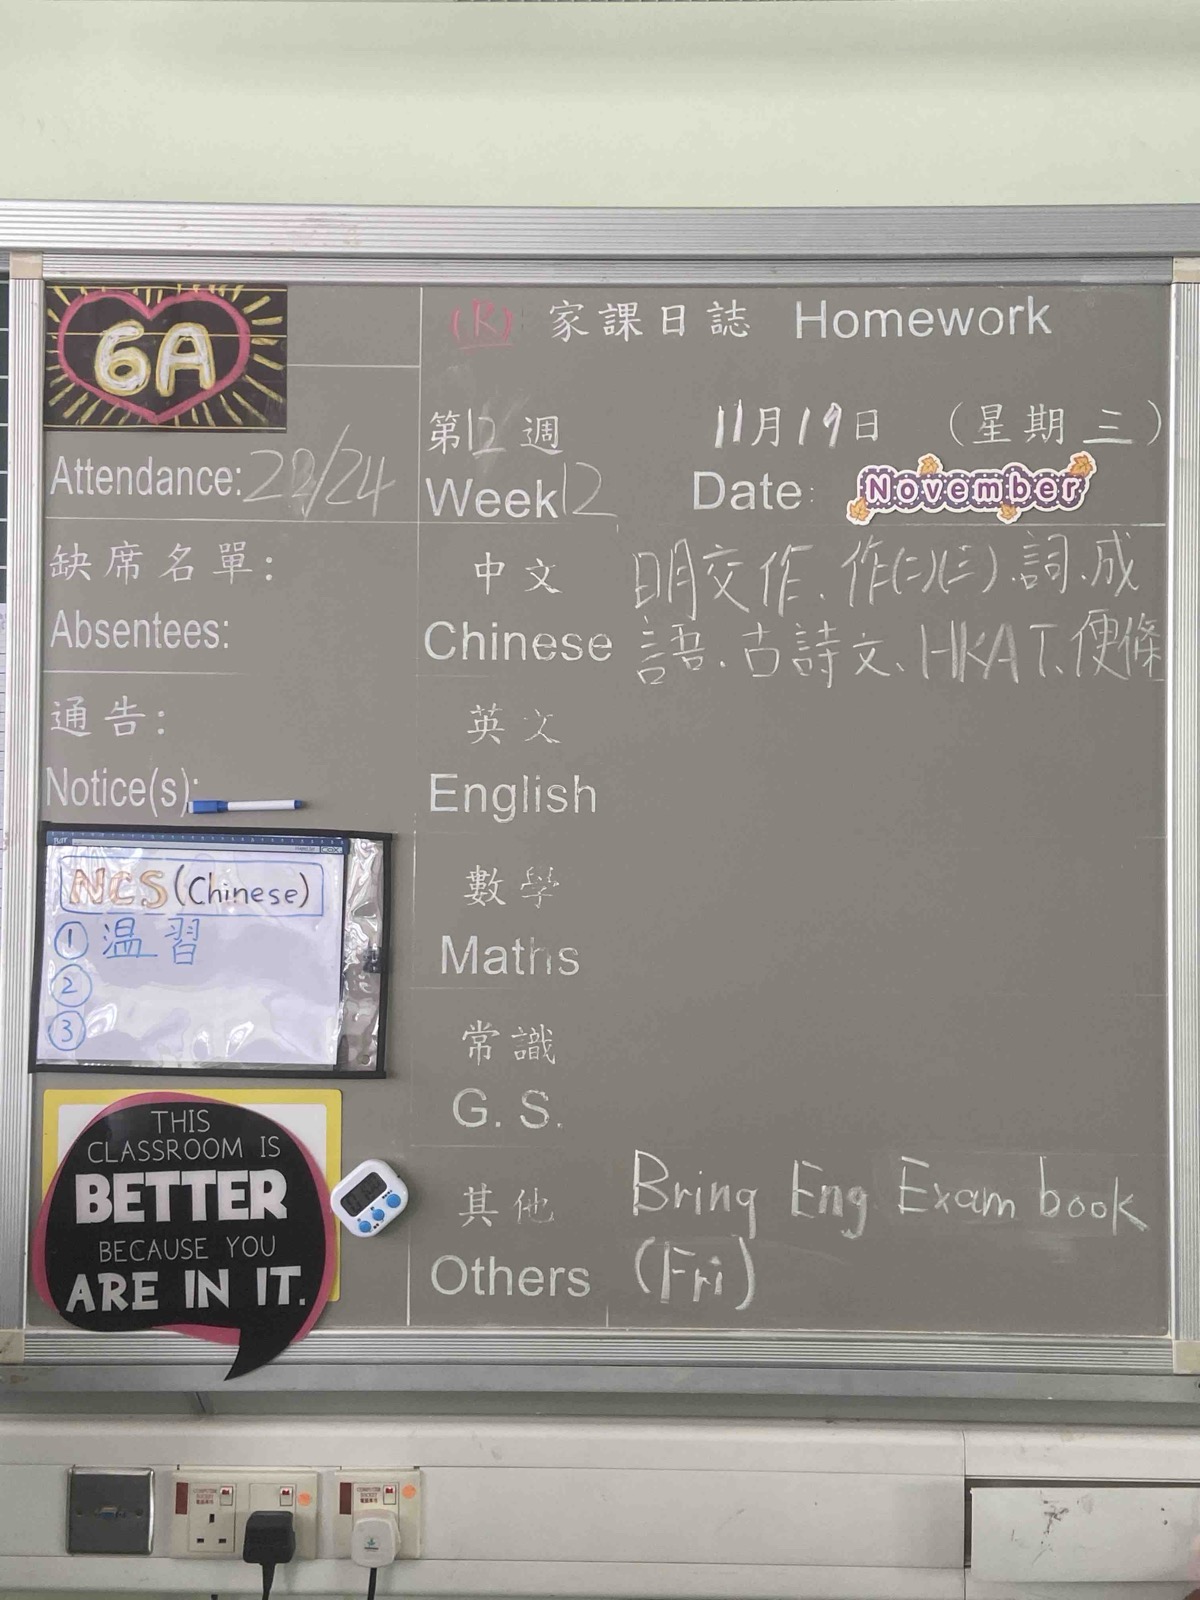 6A
(R) 家課日誌 Homework
第12週 11月19日 (星期三)
Week 12 Date: November
Attendance: /24
缺席名單:
Absentees:
通告:
Notice(s):
中文 明交作、作(二)(三)、詞、成
Chinese 語、古詩文、HKAT、便條
英文
English
數學
Maths
常識
G. S.
其他 Bring Eng Exam book
Others (Fri)
NCS (Chinese)
① 温習
②
③
THIS
CLASSROOM IS
BETTER
BECAUSE YOU
ARE IN IT.